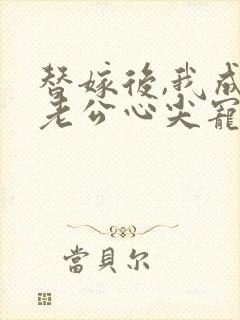 替嫁後,我成
老公心尖寵
當貝尔